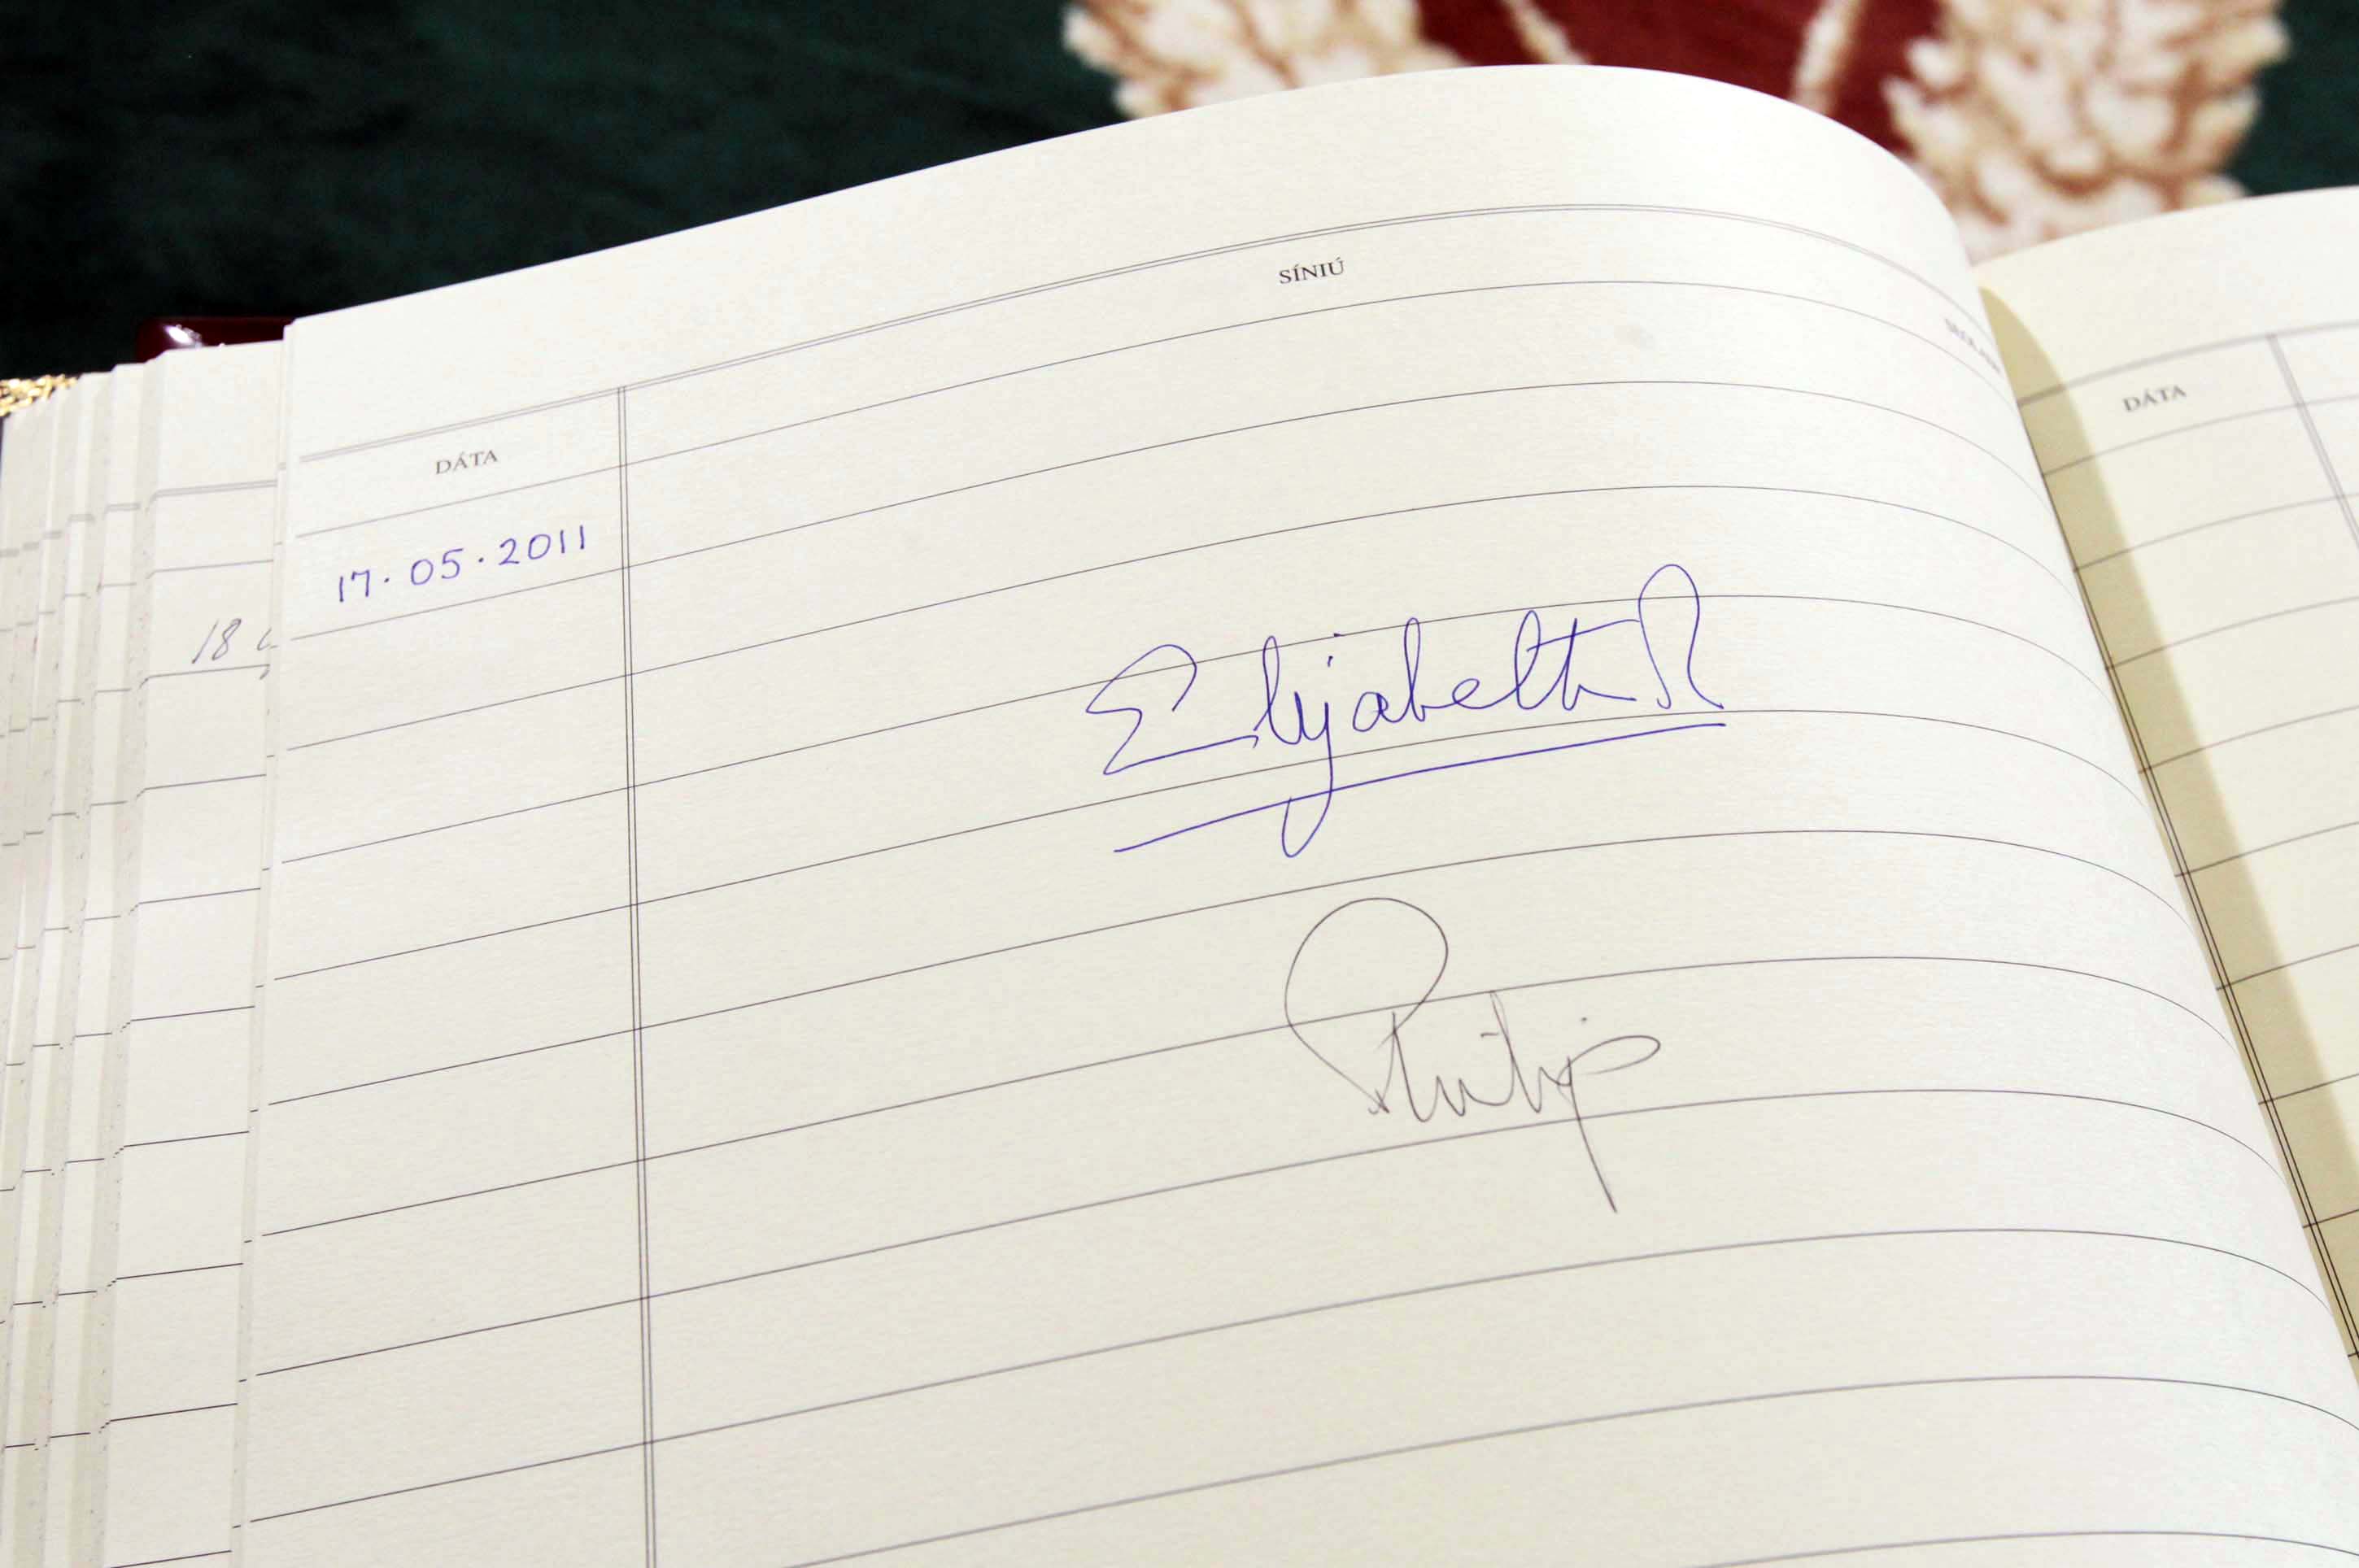 SÍNIÚ
DÁTA
17.05.2011
Elizabeth R
Philip
18
DÁTA